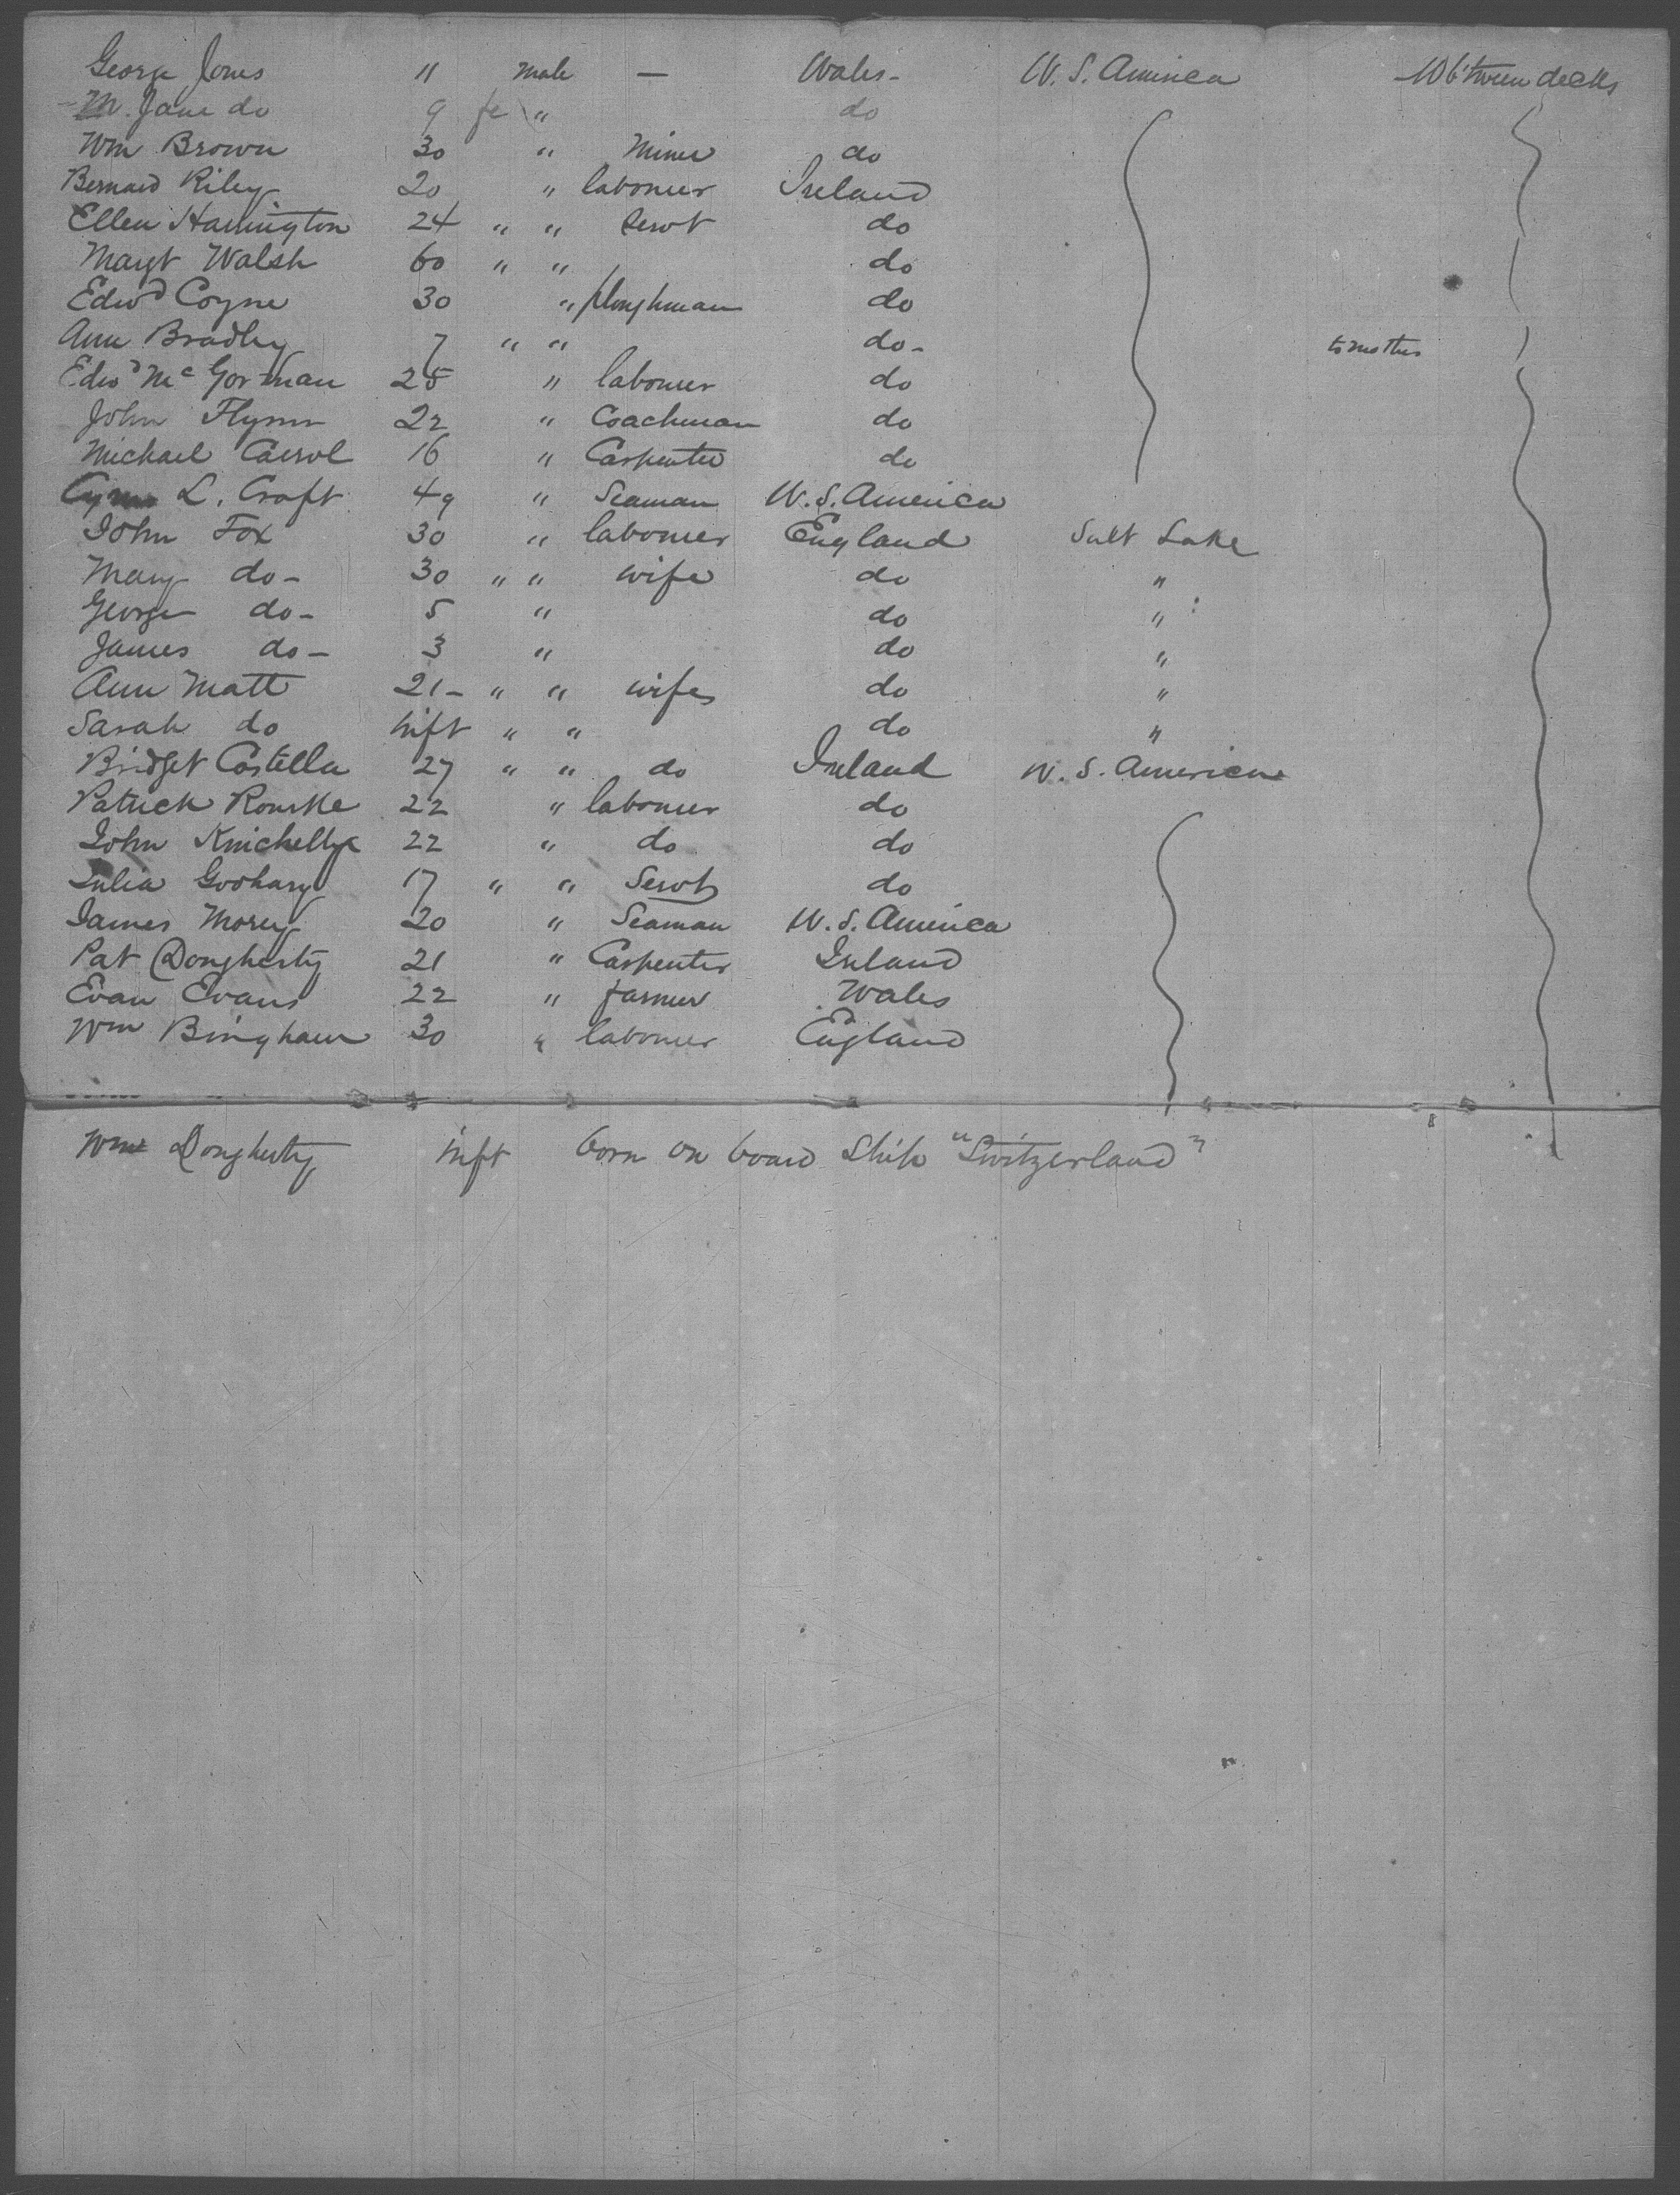 George Jones 11 male — Wales - U.S. America 10 b'tween decks
M. Jane do 9 fe " do
Wm Brown 30 " Miner do
Bernard Riley 20 " labourer Ireland
Ellen Harrington 24 " " Servt do
Margt Walsh 60 " " do
Edwd Coyne 30 " ploughman do
Ann Bradley 7 " " do -
to mother
Edwd McGorman 25 " labourer do
John Flynn 22 " Coachman do
Michael Carrol 16 " Carpenter do
L. Craft 49 " Seaman U.S. America
John Fox 30 " labourer England Salt Lake
Mary do - 30 " " wife do "
George do - 5 " do "
James do - 3 " do "
Ann Matt 21 - " " wife do "
Sarah do inft " " do "
Bridget Costella 27 " " do Ireland U.S. America
Patrick Rourke 22 " labourer do
John 22 " do do
Julia 17 " " Servt do
James Morey 20 " Seaman U.S. America
Pat Dougherty 21 " Carpenter Ireland
Evan Evans 22 " farmer Wales
Wm Bingham 30 " labourer England
Wm Dougherty inft born on board Ship "Switzerland"